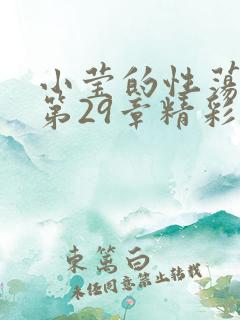 小莹的性荡
第29章精彩
东篱白
未经同意禁止转载